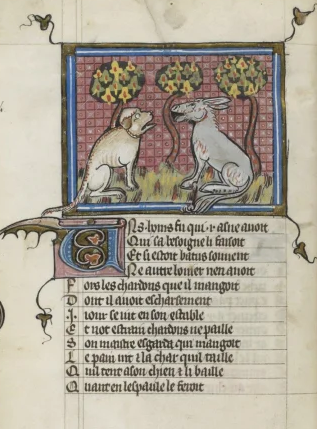 Uns homs fu qui .i. asne auoit
Qui sa besoigne li faisoit
Et si estoit batus souuent
Ne autre louier nen auoit
Fors les chardons que il mangoit
Dont il auoit escharsement
.I. iour se uit en son estable
Et not estrain chardons ne paille
Son maistre esgarda qui mangoit
Le pain et la char quil taille
Qui tent a son chien et li baille
Quant en lespaule le feroit